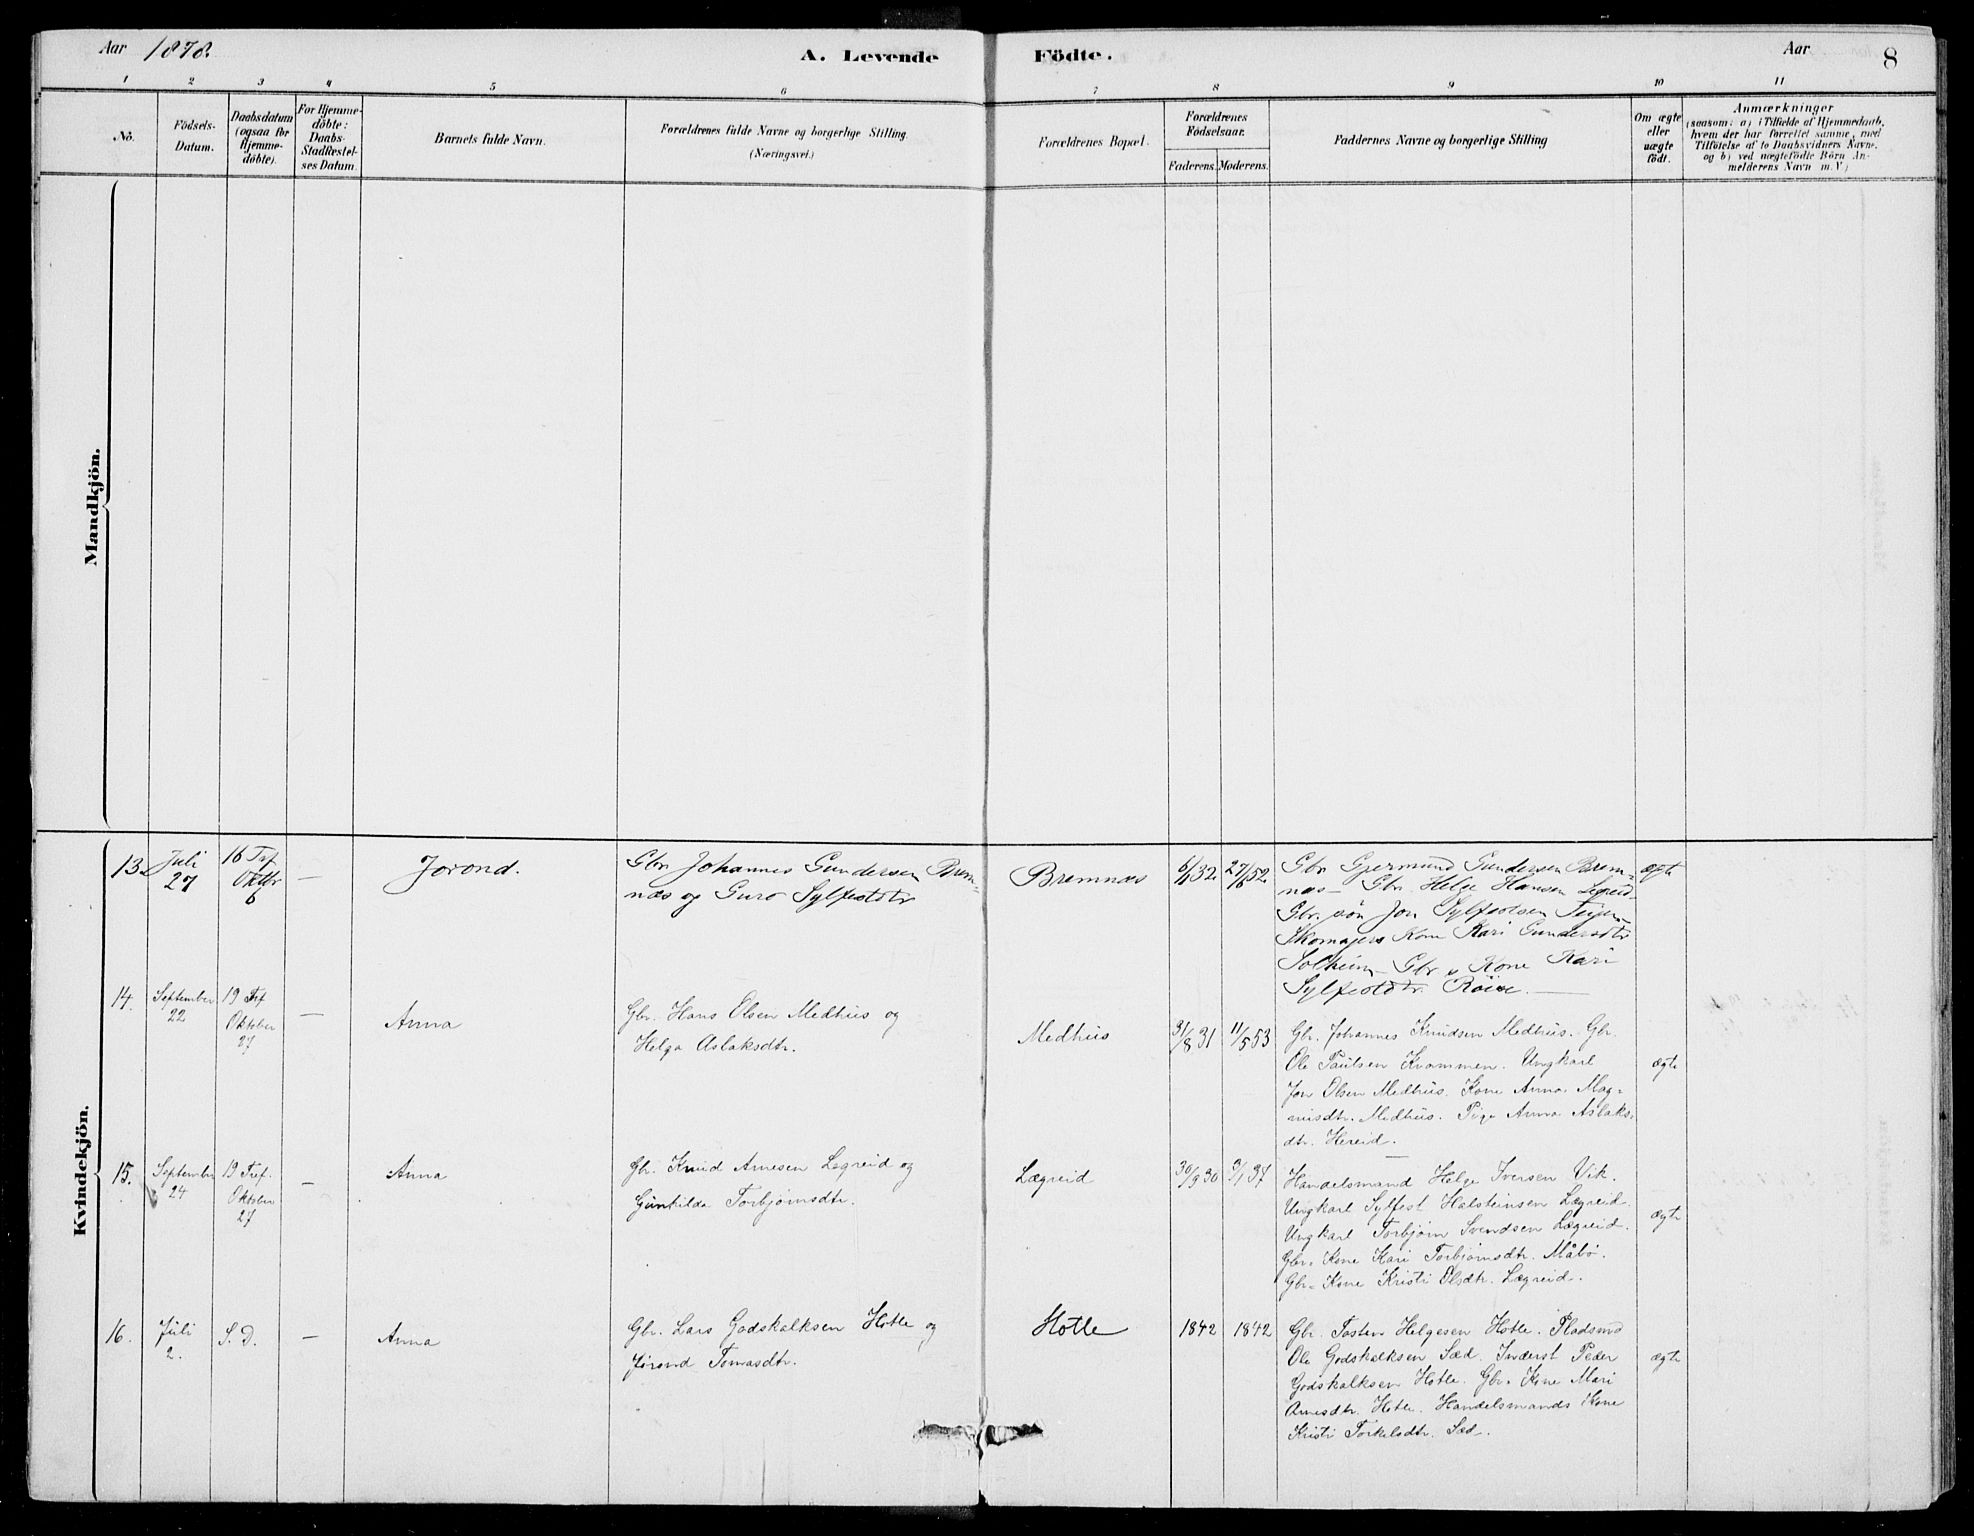 Aar 1878. A. Levende Födte. Aar 8
1 2 3 4 5 6 7 8 9 10 11
No.
Födsels-
Datum.
Daabsdatum
(ogsaa for
Hjemme-
döbte).
For Hjemme-
döbte:
Daabs-
Stadfæstel-
ses Datum
Barnets fulde Navn.
Forældrenes fulde Navne og borgerlige Stilling.
(Næringsvei.)
Forældrenes Bopæl.
Forældrenes
Födselsaar.
Faderens. Moderens.
Faddernes Navne og borgerlige Stilling
Om ægte
eller
uægte
födt.
Anmærkninger
(saasom: a) i Tilfælde af Hjemmedaab,
hvem der har forrettet samme, med
Tilföielse af to Daabsvidners Navne,
og b) ved uægtefödte Börn An-
melderens Navn m. V.)
Mandkjön.
Kvindekjön.
13.
Juli
27
16 Tref
Oktbr
6
—
Jorond.
Gbr. Johannes Gundersen Brem-
næs og Guro Sylfestdtr
Bremnæs
6/6 32. 27/6 52.
Gbr Gjermund Gundersen Brem-
næs— Gbr. Helge Hansen Legreid.
Gbr. sön Jon Sylfestsen
Skomagers Kone Kari Gundersdtr
Solheim— Gbr s Kone Kari
Sylfestdtr. Röise. —
ægte
14.
September
22
19 Tref
Oktober
27
—
Anna
Gbr. Hans Olsen Medhus og
Helga Aslaksdtr.
Medhus
31/8 31 11/5 53
Gbr. Johannes Knudsen Medhus. Gbr.
Ole Paulsen Kvammen. Ungkarl
Jon Olsen Medhus. Kone Anna Mag-
nusdtr. Medhus. Pige Anna Aslaks-
dtr. Hereid.
ægte
15.
September
24
19 Tref.
Oktober
27
—
Anna
Gbr. Knud Arnesen Legreid og
Gunhilda Torbjörnsdtr.
Lægreid
30/9 30 9/1 37
Handelsmand Helge Iversen Vik.
Ungkarl Sylfest Halsteinsen Lægreid.
Ungkarl Torbjörn Svendsen Lægreid.
Gbr. Kone Kari Torbjörnsdtr. Måbö.
Gbr. Kone Kristi Olsdtr. Lægreid.
ægte
16.
Juli
2.
S. D.
—
Anna
Gbr. Lars Godskalksen Hotle og
Jorond Tomasdtr.
Hotle
1842 1842
Gbr. Tosten Helgesen Hotle. Pladsmd
Ole Godskalksen Sæd. Inderst Peder
Godskalksen Hotle. Gbr. Kone Mari
Arnesdtr. Hotle. Handelsmands Kone
Kristi Torkelsdtr. Sæd.
ægte